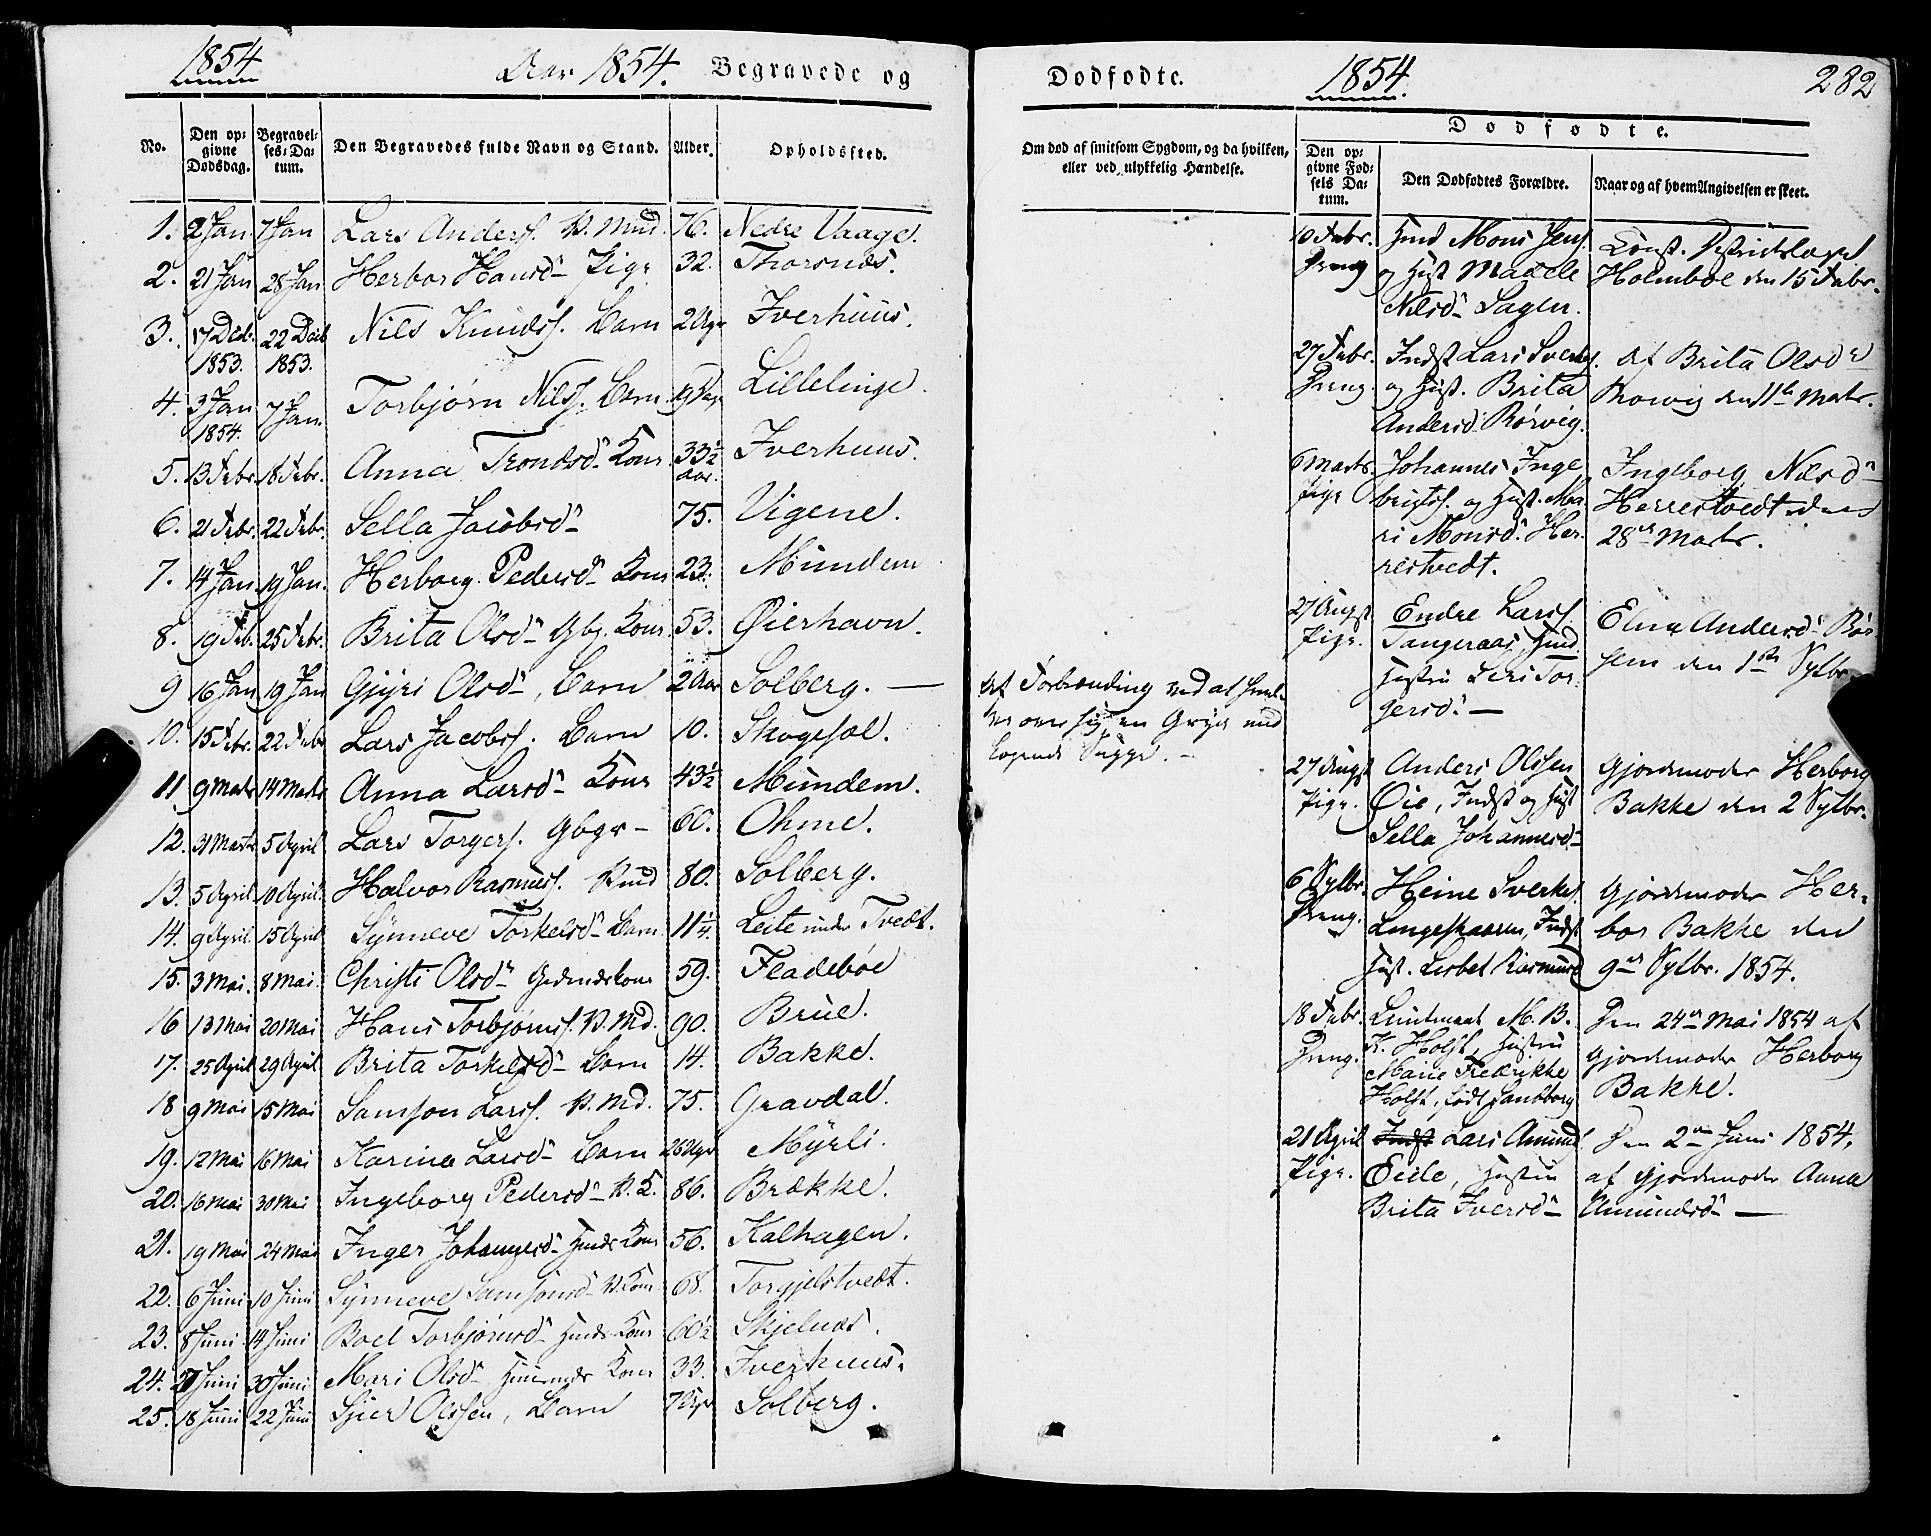 1854
Aar 1854. Begravede og
No. | Den opgivne Dødsdag. | Begravelses-Datum. | Den Begravedes fulde Navn og Stand. | Alder. | Opholdssted.
1. 2 Jan 7 Jan Lars Anders. K. Mnd. 76. Nedre Vaage.
2. 21 Jan 28 Jan Herbor Hansd. Pige 32. Thorsnæs.
3. 17 Decb. 1853. 22 Decb 1853. Nils Knuds. Barn 2 Uger Iverhuus.
4. 3 Jan 1854. 7 Jan. Torbjørn Nils. Barn 19 Dage Lillelinge.
5. 13 Febr. 18 Febr. Anna Trondsd. Kone 33½ Aar. Iverhuus.
6. 21 Febr. 22 Febr. Sella Jacobsd. 75. Vigene.
7. 14 Jan. 19 Jan. Herborg Pedersd. Kone 23. Mundem
8. 19 Feb. 25 Febr. Brita Olsd. Gbg. Kone 53. Øierhavn.
9 16 Jan 19 Jan Gjyri Olsd., Barn 2 Aar Solberg. —
10. 15 Febr. 22 Febr Lars Jacobs. Barn 10. Skogesæl.
11 9 Marts 14 Marts Anna Larsd. Kone 43½ Mundem.
12. 31 Marts 5 April Lars Torgers. Gbgr 60. Ohme.
13. 5 April 10 April. Halvor Rasmuss. Kmd 80. Solberg.
14. 9 April. 15 April Synneve Torkelsd. Barn 11¼. Leite under Tvedt.
15. 3 Mai. 8 Mai. Christi Olsd. Gdmdskone 59. Fladebøe
16 13 Mai 20 Mai Hans Torbjørns. K. Md. 90. Brue.
17. 25 April 29 April Brita Torkelsd. Barn 14. Bakke.
18 9 Mai 15 Mai Samson Lars. K. Md. 75. Gravdal.
19. 12 Mai 16 Mai Karina Larsd. Barn 26 Uger Myrli.
20. 16 Mai 30 Mai Ingeborg Pedersd. K. K. 86. Brække.
21. 19 Mai 24 Mai Inger Johannesd. Hmds Kone 56. Kalhagen.
22. 6 Juni 10 Juni Synneve Samsonsd. K. Kone 68. Torgjelstvedt.
23. 8 Juni 14 Juni Boel Torbjørnsd. Hmds Kone 60½ Skjelnæs.
24. Juni 30 Juni Mari Olsd. Huusmds Kone 33. Iverhuus.
25. 18 Juni 22 Juni Sjur Olssen, Barn 7 Uger Solberg.
Dødfødte. 1854. 282
Om død af smitsom Sygdom, og da hvilken, eller ved ulykkelig Hændelse.
Dødfødte.
Den opgivne Fødsels Datum. | Den Dødfødtes Forældre. | Naar og af hvem Angivelsen er skeet.
Af Forbrænding ved at hvelve over sig en Gryde med kogende Suppe. —
10 Febr. Dreng
Hmd Mons Jens. og Hust Madele Nilsd. Sagen.
Const. Districtslæge Holmboe den 15 Febr.
27 Febr. Dreng.
Indst Lars Sverkes. og Hust. Brita Andersd. Rørvig.
Af Brita Olsd. Rørvig den 11te Marts.
6 Marts. Pige
Johannes Ingebrigts. og Hust. Mari Monsd. Herrestvedt.
Ingeborg Nilsd. Herrestvedt den 28de Marts.
27 Augst Pige.
Endre Lars. Tangeraas, Hmd Hustru Siri Torgersd. —
Elna Andersd. den 1ste Sptbr.
27 Augst Pige.
Anders Olssen Øie, Indst og Hust Sella Johannesd.
Gjordemoder Herborg Bakke den 2 Sptbr.
6 Sptbr. Dreng.
Heine Sverkes. Lingeskaaren, Indst. Hust. Lisbet Rasmusd
Gjordemoder Herbor Bakke den 9de Sptbr. 1854.
18 Febr. Dreng.
Lieutenant M. B. K. Holst, Hustru Marie Fredrikke Holst, født Sandberg
Den 24de Mai 1854 af Gjordemoder Herborg Bakke.
21 April Pige.
Indst Lars Amunds Eide, Hustru Brita Iversd.
Den 2den Juni 1854, af Gjordemoder Anna Amundsd. —